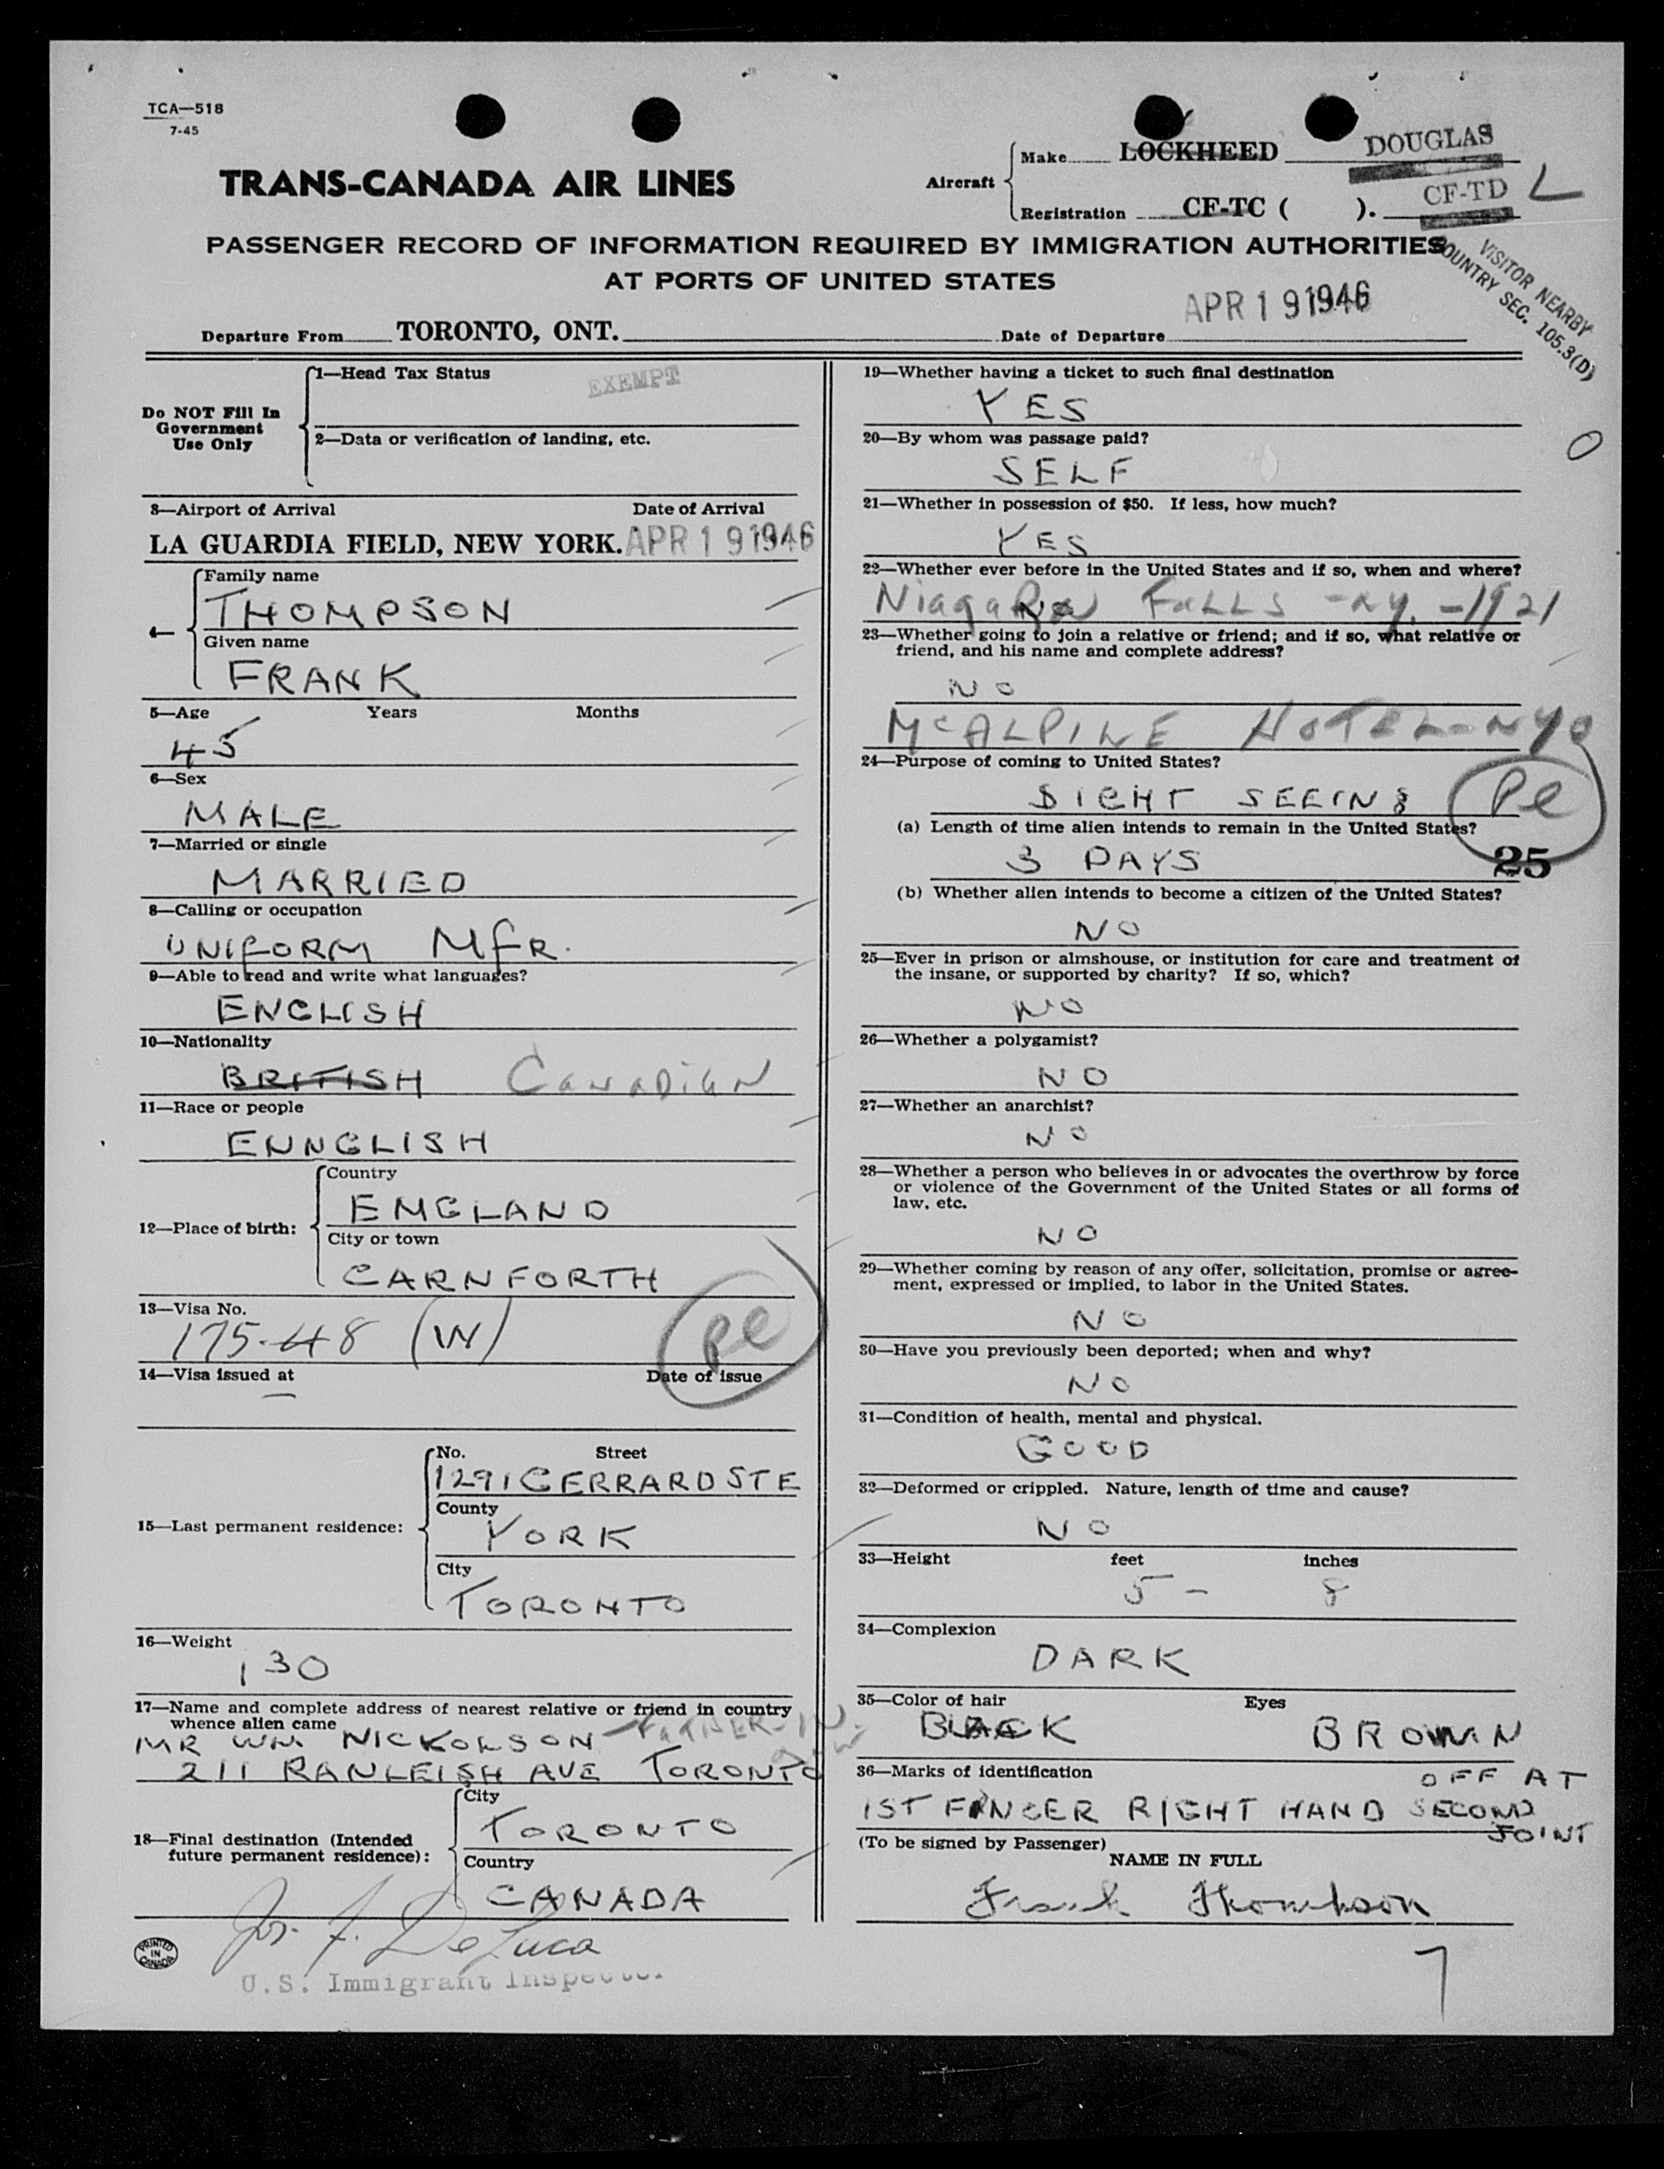 TCA—518
7-45
TRANS-CANADA AIR LINES
Aircraft
Make LOCKHEED DOUGLAS
Registration CF-TC ( ). CF-TD L
PASSENGER RECORD OF INFORMATION REQUIRED BY IMMIGRATION AUTHORITIES
AT PORTS OF UNITED STATES
VISITOR NEARBY
COUNTRY SEC. 105.3(D)
Departure From TORONTO, ONT. Date of Departure APR 19 1946
Do NOT Fill In
Government
Use Only
1—Head Tax Status EXEMPT
2—Data or verification of landing, etc.
3—Airport of Arrival Date of Arrival
LA GUARDIA FIELD, NEW YORK. APR 19 1946
4—
Family name
THOMPSON
Given name
FRANK
5—Age Years Months
45
6—Sex
MALE
7—Married or single
MARRIED
8—Calling or occupation
UNIFORM MFR.
9—Able to read and write what languages?
ENGLISH
10—Nationality
BRITISH CANADIAN
11—Race or people
ENNGLISH
12—Place of birth:
Country
EMGLAND
City or town
CARNFORTH
13—Visa No.
175-48 (W)
14—Visa issued at Date of issue
—
15—Last permanent residence:
No. Street
1291 GERRARD ST E
County
YORK
City
TORONTO
16—Weight
130
17—Name and complete address of nearest relative or friend in country
whence alien came
MR WM. NICKOLSON — FATHER-IN-LAW
211 RANLEISH AVE TORONTO
18—Final destination (Intended
future permanent residence):
City
TORONTO
Country
CANADA
Jos. F. DeLuca
U.S. Immigrant Inspector
PRINTED
IN
CANADA
19—Whether having a ticket to such final destination
YES
20—By whom was passage paid?
SELF
O
21—Whether in possession of $50. If less, how much?
YES
22—Whether ever before in the United States and if so, when and where?
NO
Niagara Falls - NY. - 1921
23—Whether going to join a relative or friend; and if so, what relative or
friend, and his name and complete address?
NO
McALPINE HOTEL - NYC
24—Purpose of coming to United States?
SIGHT SEEING
(a) Length of time alien intends to remain in the United States?
3 DAYS
25
(b) Whether alien intends to become a citizen of the United States?
NO
25—Ever in prison or almshouse, or institution for care and treatment of
the insane, or supported by charity? If so, which?
NO
26—Whether a polygamist?
NO
27—Whether an anarchist?
NO
28—Whether a person who believes in or advocates the overthrow by force
or violence of the Government of the United States or all forms of
law, etc.
NO
29—Whether coming by reason of any offer, solicitation, promise or agree-
ment, expressed or implied, to labor in the United States.
NO
30—Have you previously been deported; when and why?
NO
31—Condition of health, mental and physical.
GOOD
32—Deformed or crippled. Nature, length of time and cause?
NO
33—Height feet inches
5 - 8
34—Complexion
DARK
35—Color of hair Eyes
BLACK BROWN
36—Marks of identification OFF AT
1ST FINGER RIGHT HAND SECOND
JOINT
(To be signed by Passenger)
NAME IN FULL
Frank Thompson
7